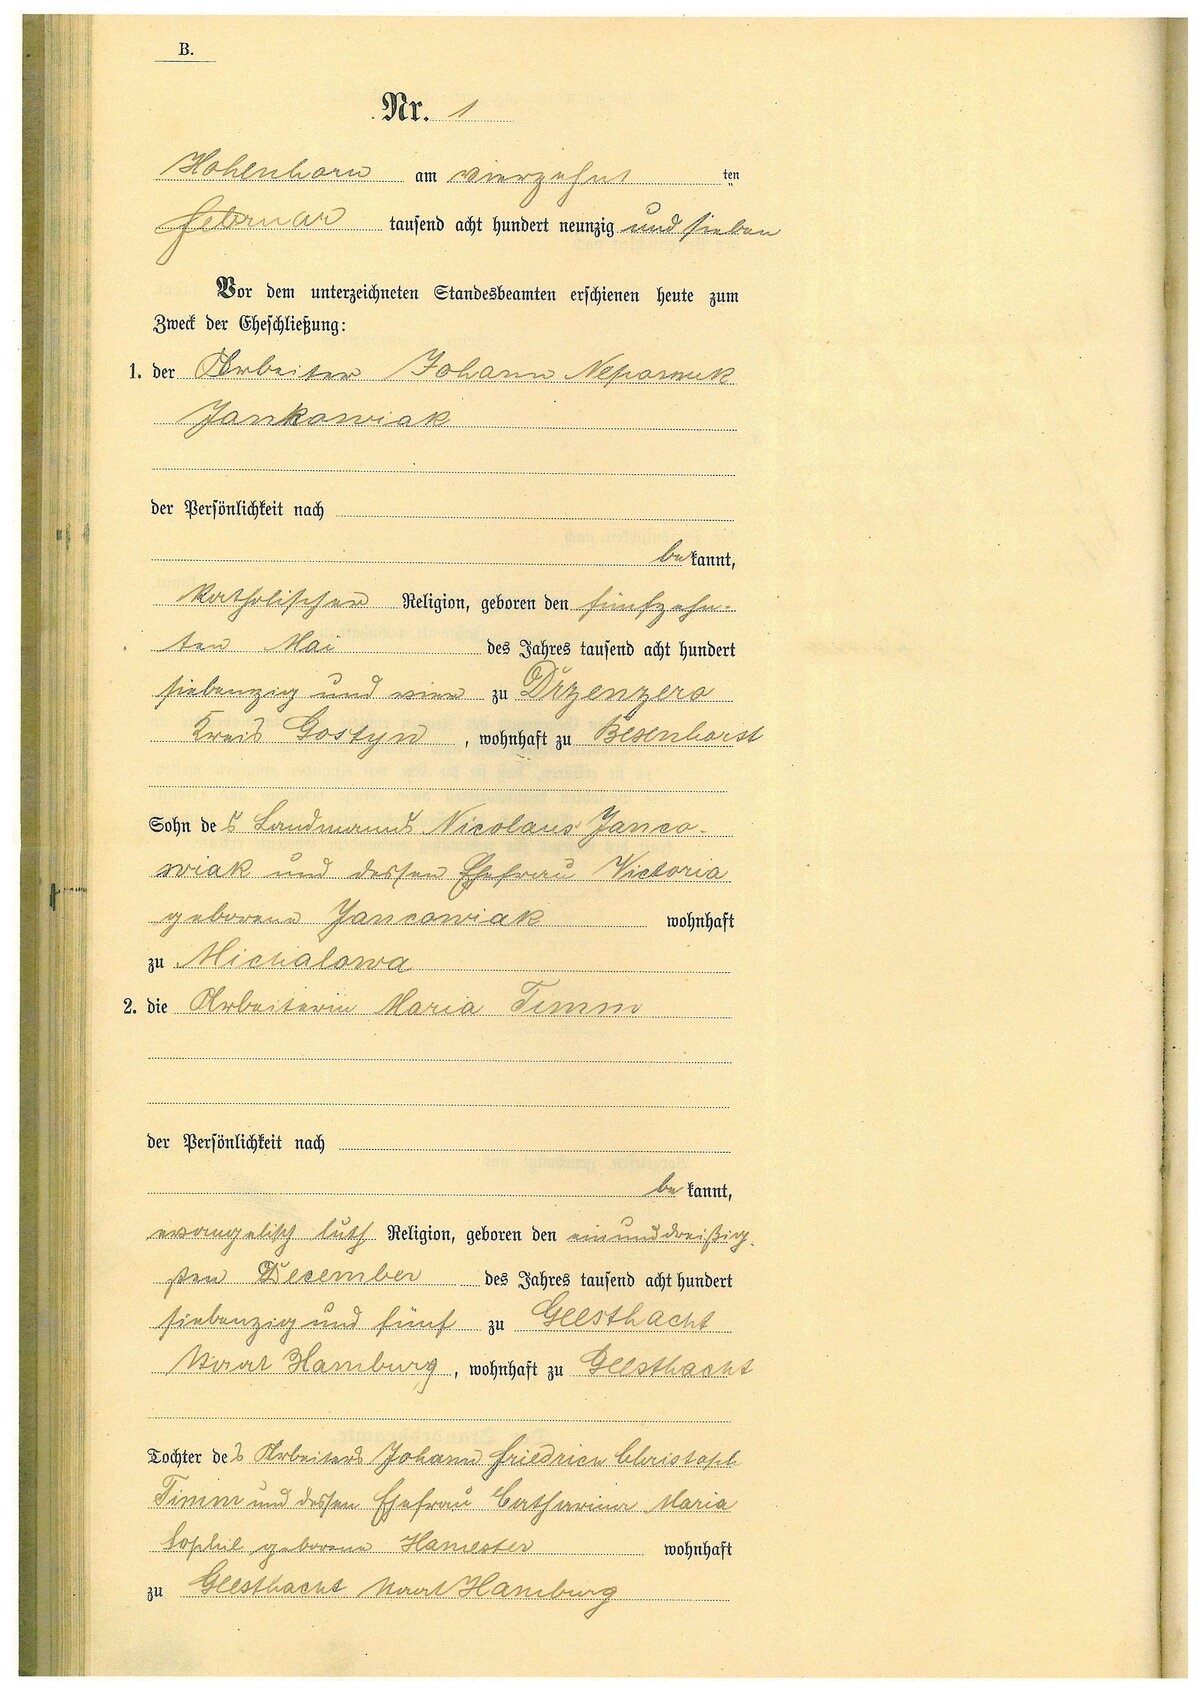 B.
Nr. 1
Hohenhorn am vierzehnten
Februar tausend acht hundert neunzig und sieben
Vor dem unterzeichneten Standesbeamten erschienen heute zum
Zweck der Eheschließung:
1. der Arbeiter Johann Nepomuk
Jankowiak
der Persönlichkeit nach
bekannt,
katholischer Religion, geboren den fünfzehn-
ten Mai des Jahres tausend acht hundert
siebenzig und vier zu
Kreis Gostyn, wohnhaft zu Besenhorst
Sohn des Landmanns Nicolaus Janco-
wiak und dessen Ehefrau Victoria
geborene Jancowiak wohnhaft
zu Michalowa
2. die Arbeiterin Maria Timm
der Persönlichkeit nach
bekannt,
evangelisch luth Religion, geboren den einunddreißig-
sten December des Jahres tausend acht hundert
siebenzig und fünf zu Geesthacht
Staat Hamburg, wohnhaft zu Geesthacht
Tochter des Arbeiters Johann Friedrich Christoph
Timm und dessen Ehefrau Catharina Maria
Sophie geborene Hamester wohnhaft
zu Geesthacht Staat Hamburg